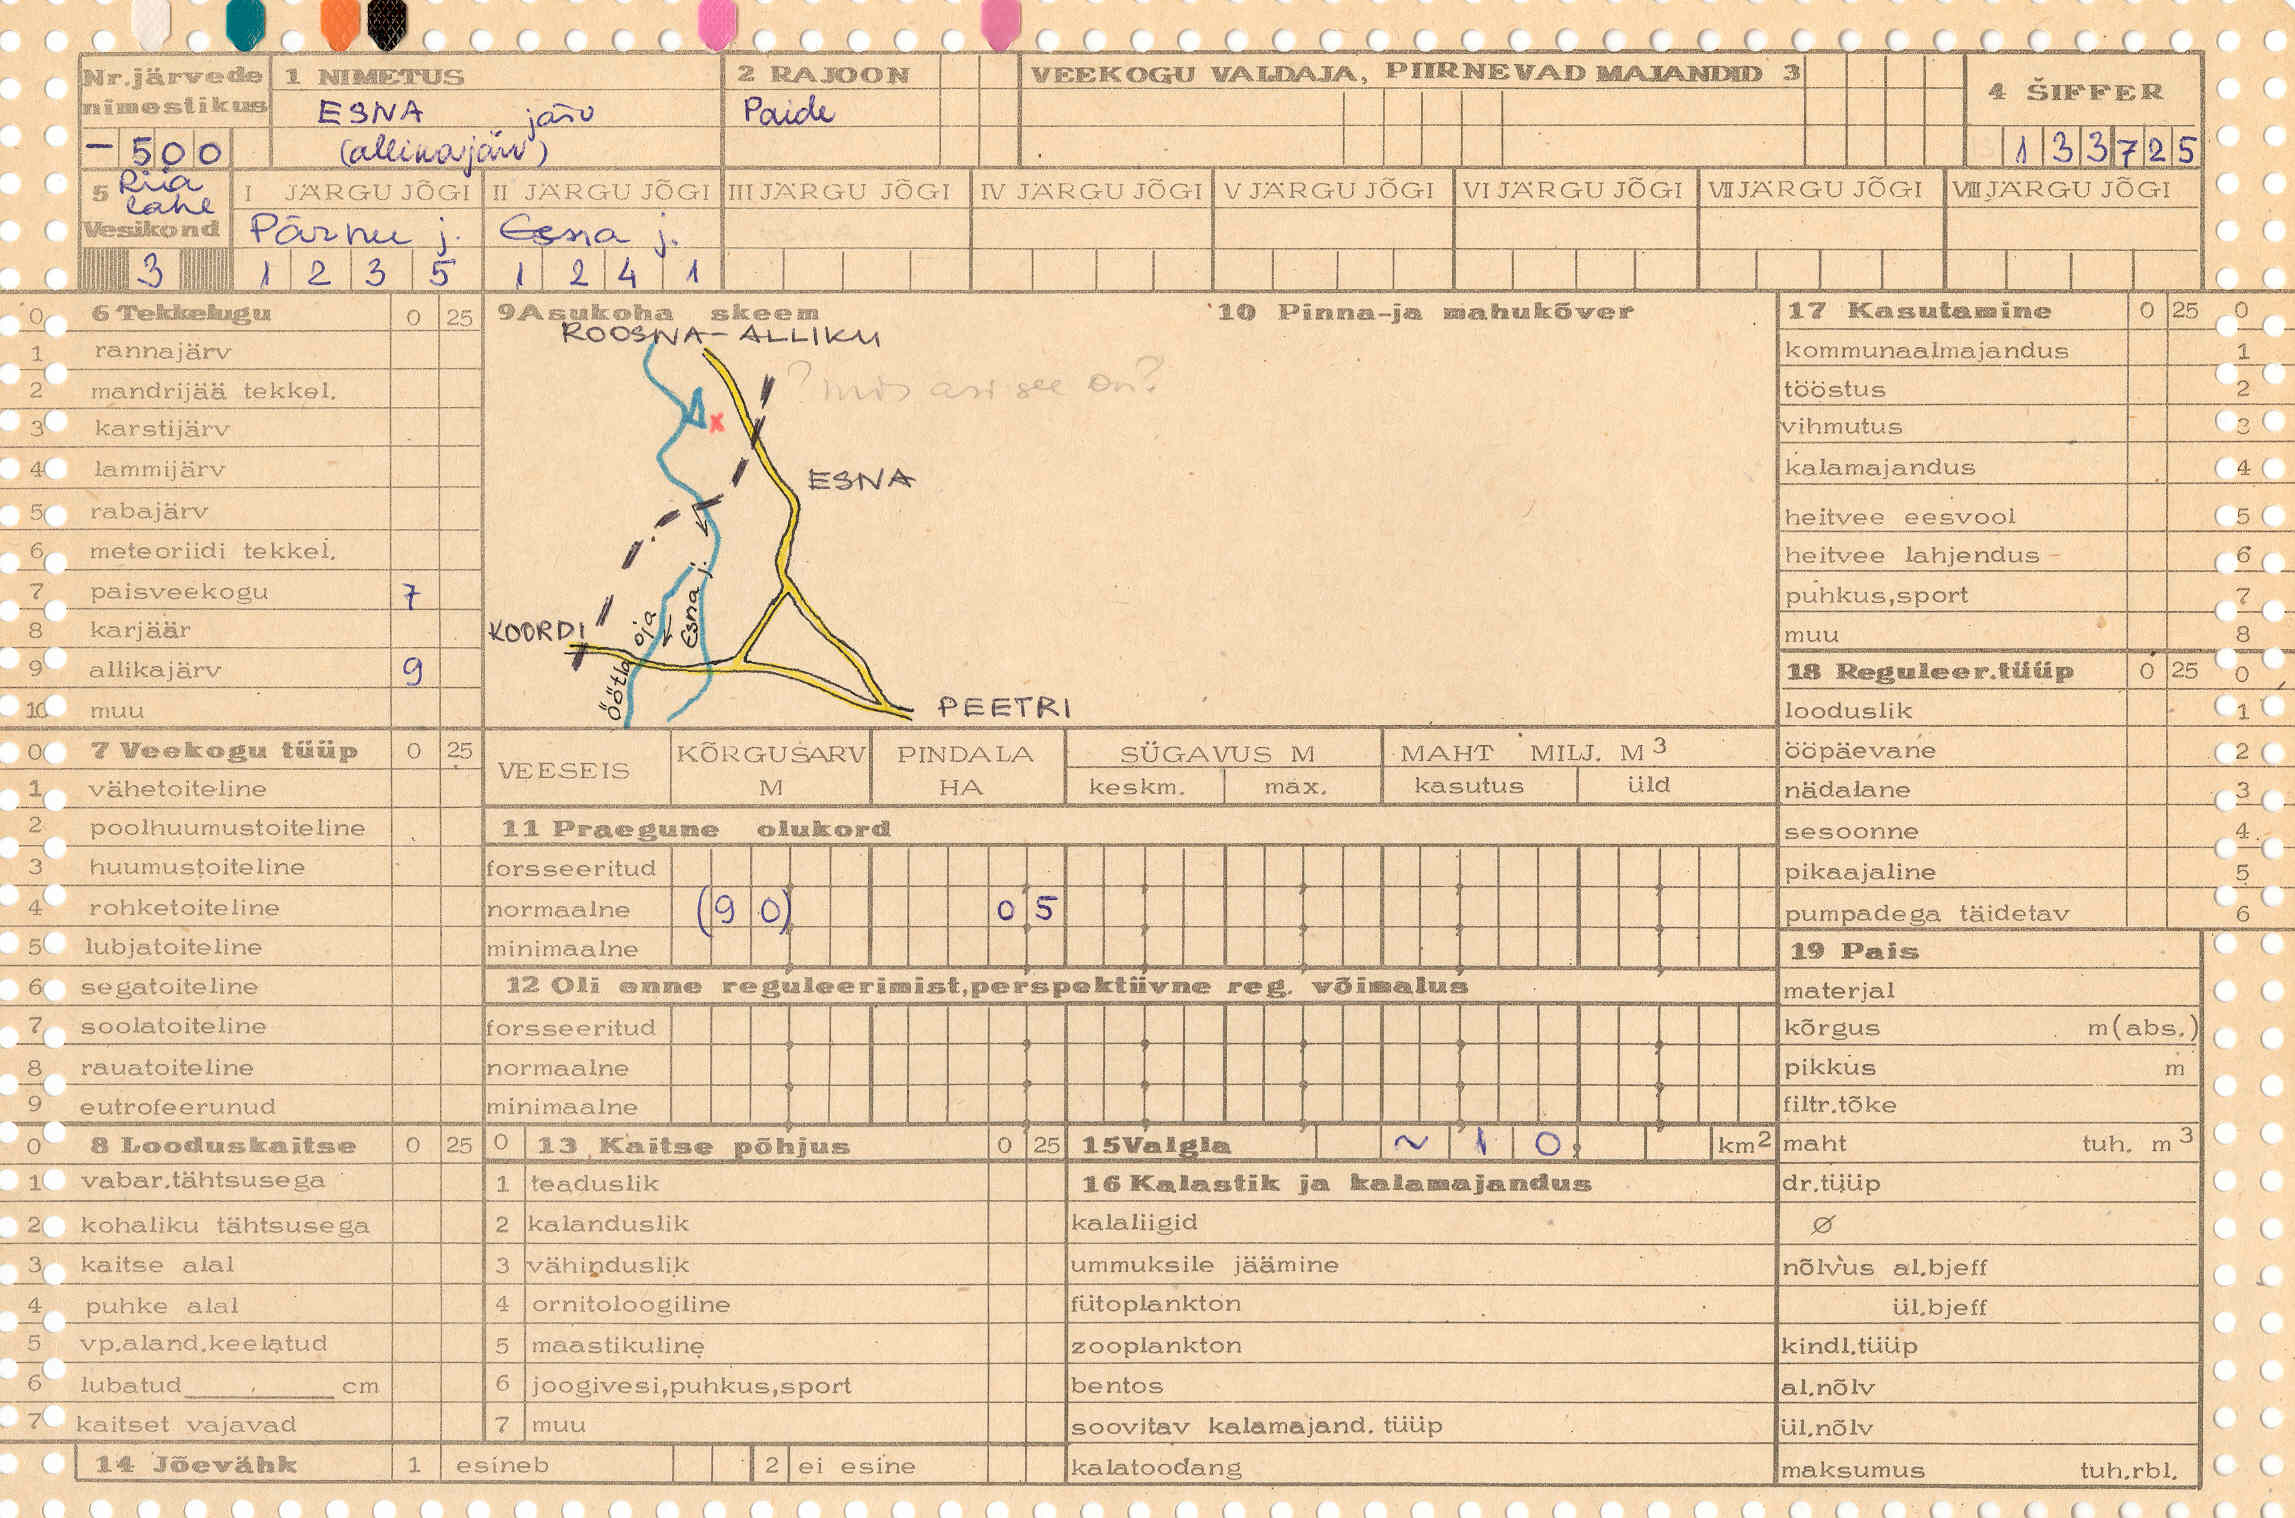 Nr.järvede nimestikus
- 500
1 NIMETUS
ESNA järv
(allikajärv)
2 RAJOON
Paide
VEEKOGU VALDAJA, PIIRNEVAD MAJANDID 3
4 ŠIFFER
133725
5 Riia lahe
Vesikond
3
I JÄRGU JÕGI
Pärnu j.
1 2 3 5
II JÄRGU JÕGI
Esna j.
1 2 4 1
III JÄRGU JÕGI
IV JÄRGU JÕGI
V JÄRGU JÕGI
VI JÄRGU JÕGI
VII JÄRGU JÕGI
VIII JÄRGU JÕGI
0 6 Tekkelugu 0 25
1 rannajärv
2 mandrijää tekkel.
3 karstijärv
4 lammijärv
5 rabajärv
6 meteoriidi tekkel.
7 paisveekogu 7
8 karjäär
9 allikajärv 9
10 muu
9 Asukoha skeem
ROOSNA-ALLIKU
? mis asi see on?
x
ESNA
KOORDI
Öötla oja
Esna j.
PEETRI
10 Pinna-ja mahukõver
17 Kasutamine 0 25 0
kommunaalmajandus 1
tööstus 2
vihmutus 3
kalamajandus 4
heitvee eesvool 5
heitvee lahjendus 6
puhkus,sport 7
muu 8
18 Reguleer.tüüp 0 25 0
looduslik 1
ööpäevane 2
nädalane 3
sesoonne 4
pikaajaline 5
pumpadega täidetav 6
0 7 Veekogu tüüp 0 25
1 vähetoiteline
2 poolhuumustoiteline
3 huumustoiteline
4 rohketoiteline
5 lubjatoiteline
6 segatoiteline
7 soolatoiteline
8 rauatoiteline
9 eutrofeerunud
VEESEIS
KÕRGUSARV M
PINDALA HA
SÜGAVUS M
keskm. max.
MAHT MILJ. M3
kasutus üld
11 Praegune olukord
forsseeritud
normaalne (90) 0 5
minimaalne
12 Oli enne reguleerimist,perspektiivne reg. võimalus
forsseeritud
normaalne
minimaalne
19 Pais
materjal
kõrgus m(abs.)
pikkus m
filtr.tõke
maht tuh. m3
dr.tüüp
ø
nõlvus al.bjeff
ül.bjeff
kindl.tüüp
al.nõlv
ül.nõlv
maksumus tuh.rbl.
0 8 Looduskaitse 0 25
1 vabar.tähtsusega
2 kohaliku tähtsusega
3 kaitse alal
4 puhke alal
5 vp.aland.keelatud
6 lubatud cm
7 kaitset vajavad
0 13 Kaitse põhjus 0 25
1 teaduslik
2 kalanduslik
3 vähinduslik
4 ornitoloogiline
5 maastikuline
6 joogivesi,puhkus,sport
7 muu
15 Valgla ~ 1 0, km2
16 Kalastik ja kalamajandus
kalaliigid
ummuksile jäämine
fütoplankton
zooplankton
bentos
soovitav kalamajand. tüüp
kalatoodang
14 Jõevähk 1 esineb 2 ei esine